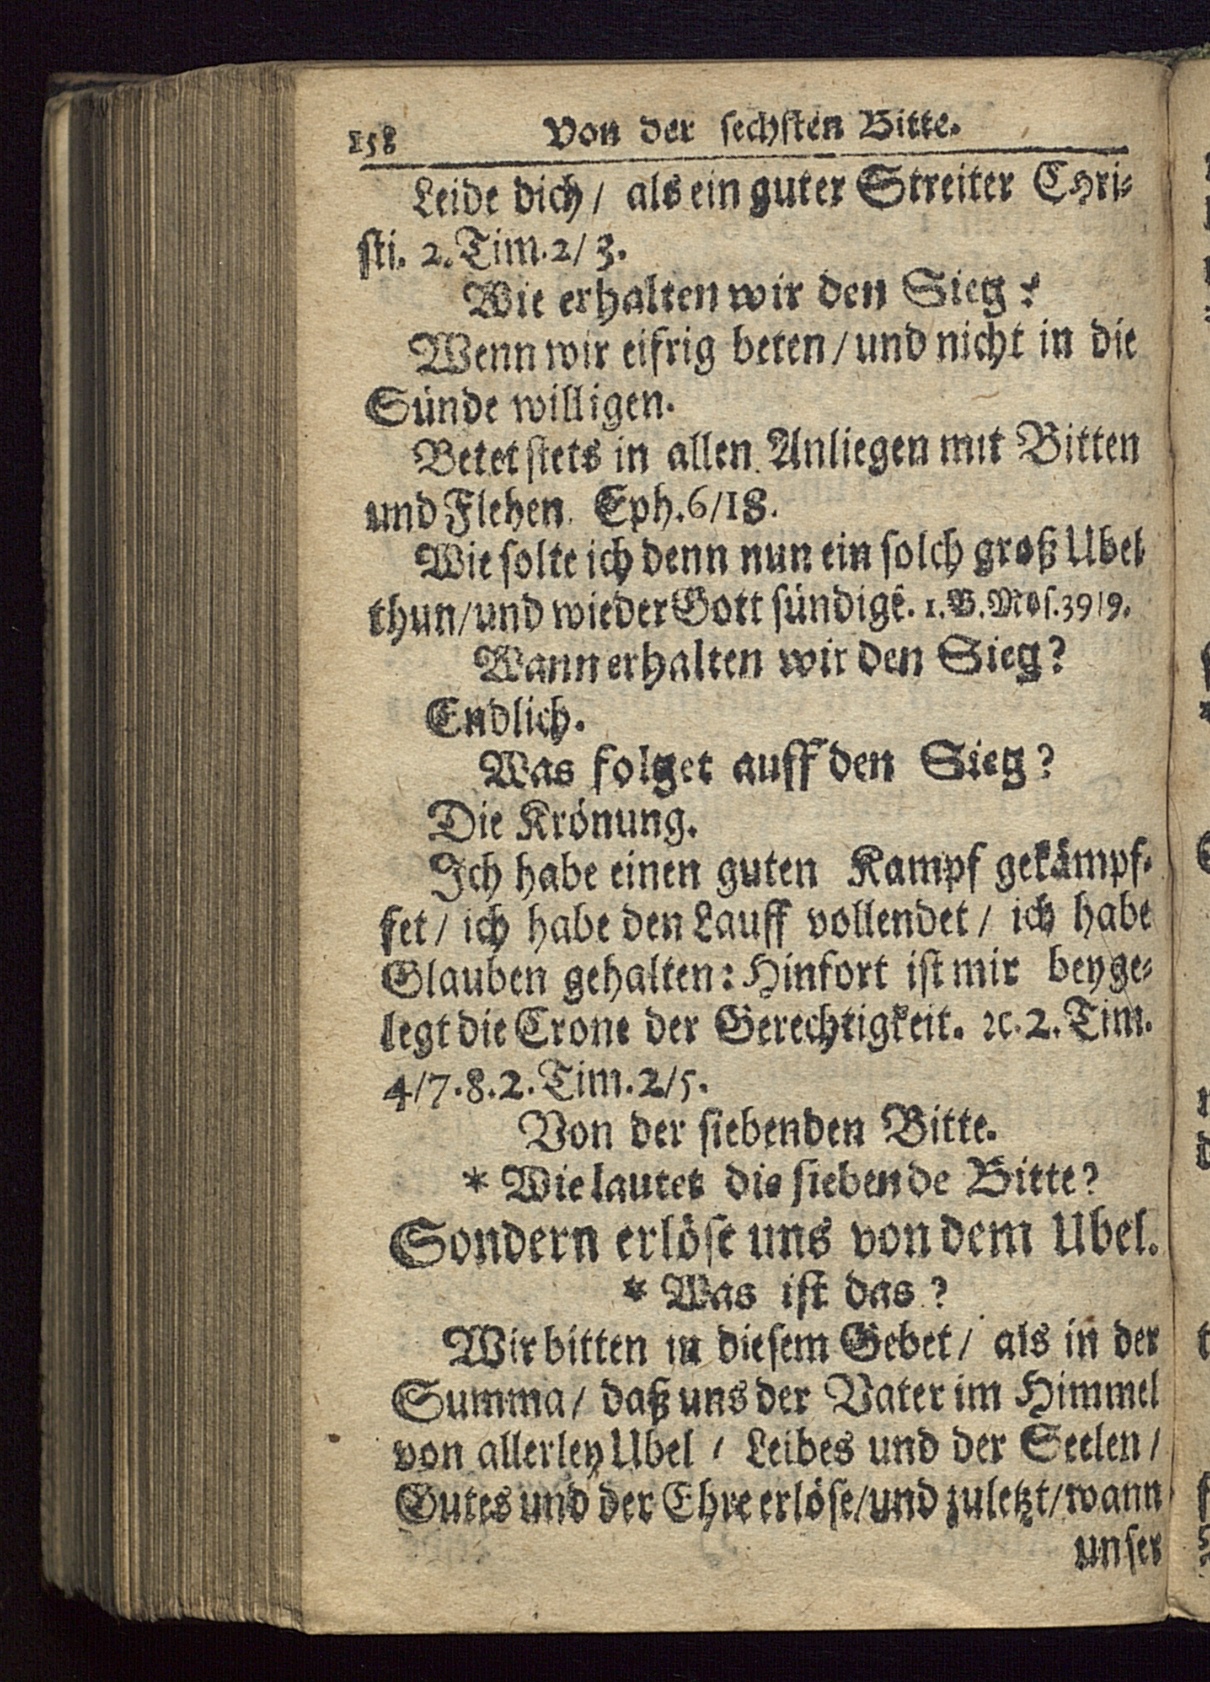 158 Von der sechsten Bitte.
Leide dich/ als ein guter Streiter Chri-
sti. 2. Tim. 2/3.
Wie erhalten wir den Sieg?
Wenn wir eifrig beten/und nicht in die
Sünde willigen.
Betet stets in allen Anliegen mit Bitten
und Flehen. Eph. 6/18.
Wie solte ich denn nun ein solch groß Ubel
thun/und wieder Gott sündigē. 1. B. Mos. 39/9.
Wann erhalten wir den Sieg?
Endlich.
Was folget auff den Sieg?
Die Krönung.
Ich habe einen guten Kampf gekämpf-
fet/ ich habe den Lauff vollendet/ ich habe
Glauben gehalten: Hinfort ist mir beyge-
legt die Crone der Gerechtigkeit. ꝛc. 2. Tim.
4/7. 8. 2. Tim. 2/5.
Von der siebenden Bitte.
* Wie lautet die siebende Bitte?
Sondern erlöse uns von dem Ubel.
* Was ist das?
Wir bitten in diesem Gebet/ als in der
Summa/ daß uns der Vater im Himmel
von allerley Ubel/ Leibes und der Seelen/
Gutes und der Ehre erlöse/und zuletzt/wann
unser